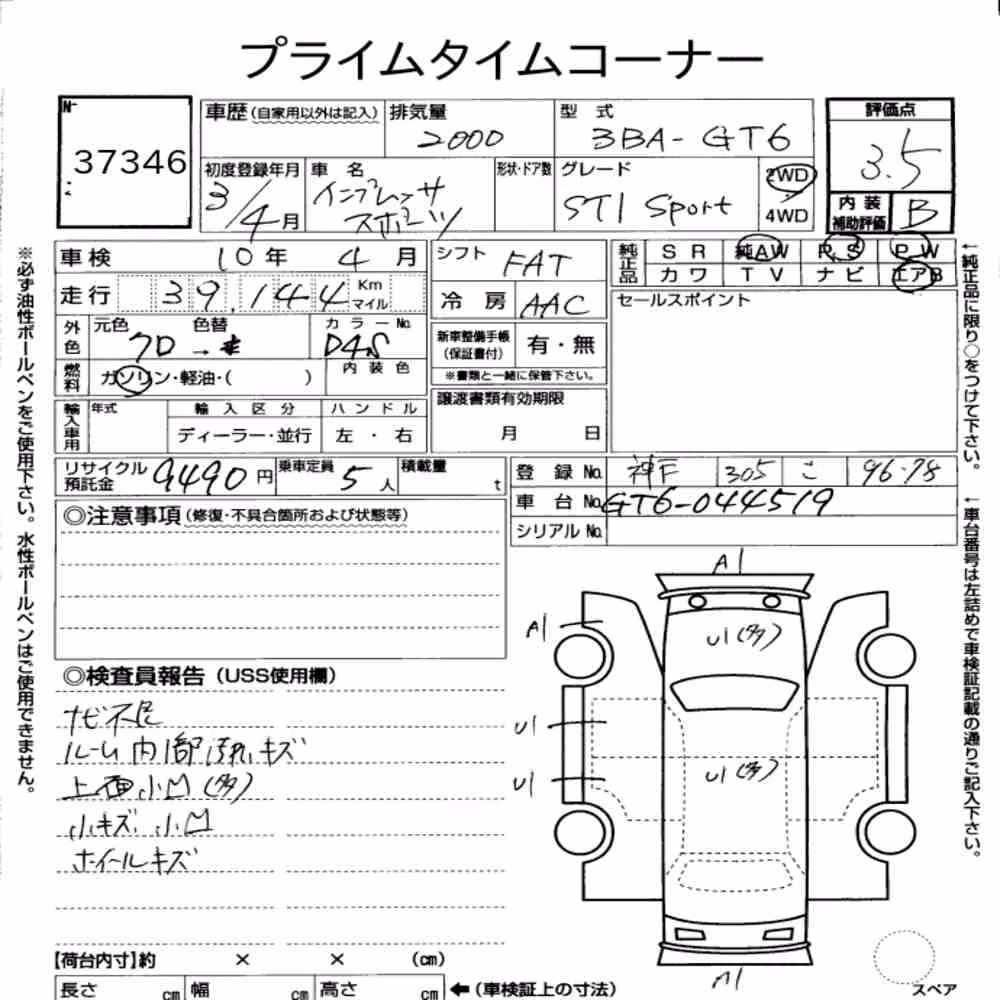 プライムタイムコーナー
No. 37346
車歴(自家用以外は記入)
排気量 2000
型式 3BA-GT6
評価点 3.5
初度登録年月 3/4月
車名 インプレッサ スポーツ
形状・ドア数
グレード STI Sport
2WD
4WD
内装補助評価 B
車検 10年 4月
シフト FAT
純正品 SR 純AW P.S P.W
カワ TV ナビ エアB
走行 39,144 Km マイル
冷房 AAC
セールスポイント
外色 元色 クロ → 色替
カラーNo. D4S
新車整備手帳(保証書付) 有・無
※書類と一緒に保管下さい。
内装色
燃料 ガソリン・軽油・( )
譲渡書類有効期限
月 日
輸入車用 年式
輸入区分 ディーラー・並行
ハンドル 左・右
リサイクル預託金 9490円
乗車定員 5人
積載量 t
登録No. 神戸 305 こ 96-78
車台No. GT6-044519
シリアルNo.
◎注意事項(修復・不具合箇所および状態等)
◎検査員報告(USS使用欄)
ナビ不良
ルーム内1部汚れ、キズ
上面小凹(多)
小キズ、小凹
ホイールキズ
A1
A1
U1(多)
U1
U1
U1(多)
A1
スペア
【荷台内寸】約 × × (cm)
長さ cm 幅 cm 高さ cm ←(車検証上の寸法)
※必ず油性ボールペンをご使用下さい。水性ボールペンはご使用できません。
←純正品に限り○をつけて下さい。
←車台番号は左詰めで車検証記載の通りご記入下さい。